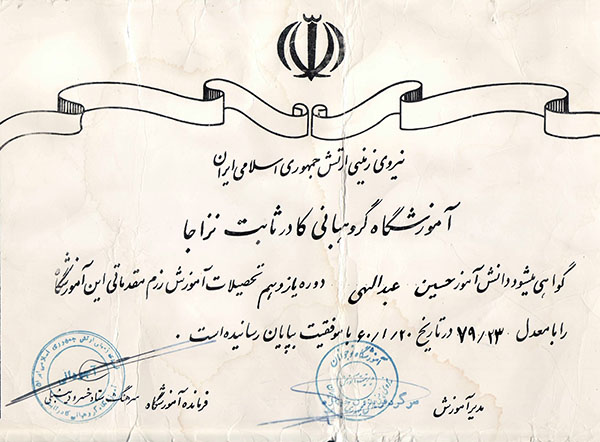 نیروی زمینی ارتش جمهوری اسلامی ایران
آموزشگاه گروهبانی کادر ثابت نزاجا
گواهی میشود دانش آموز حسین عبدالهی دوره یازدهم تحصیلات آموزش رزم مقدماتی این آموزشگاه
را با معدل ۷۹/۲۳ در تاریخ ۶۰/۱/۲۰ با موفقیت بپایان رسانیده است.
مدیر آموزش
فرمانده آموزشگاه سرهنگ ستاد خسرو
آموزشگاه نوجوان